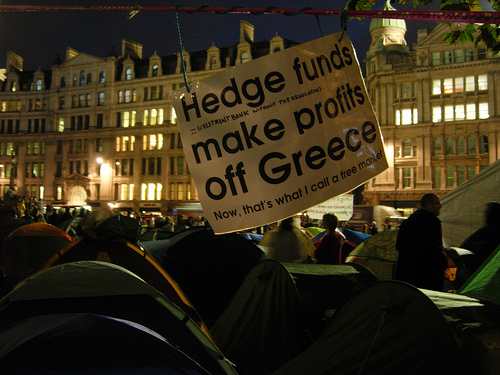 Hedge funds
:: INVESTMENT BANK WITHOUT THE REGULATION!
make profits
off Greece
Now, that's what I call a free market